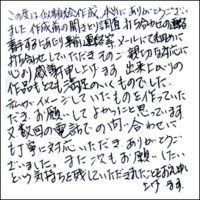 この度は似顔絵作成、本当にありがとうござい
ました。作成前の聞きとり調査、打ち合わせの連絡
事前連絡等、メールにて大切かに
打ち合せしていただき そのご親切な対応に
心より感謝申し上げます。出来上がりの
作品もとても満足のいくものでした。
私がイメージしていたものを作っていた
だき、お願いしてよかったと思っています。
又数回の電話での問い合わせに
も丁寧に対応いただき、ありがとうござ
いました。またごえもお願いしたい
という気持ちを残していただきましたことお礼申し
上げます。